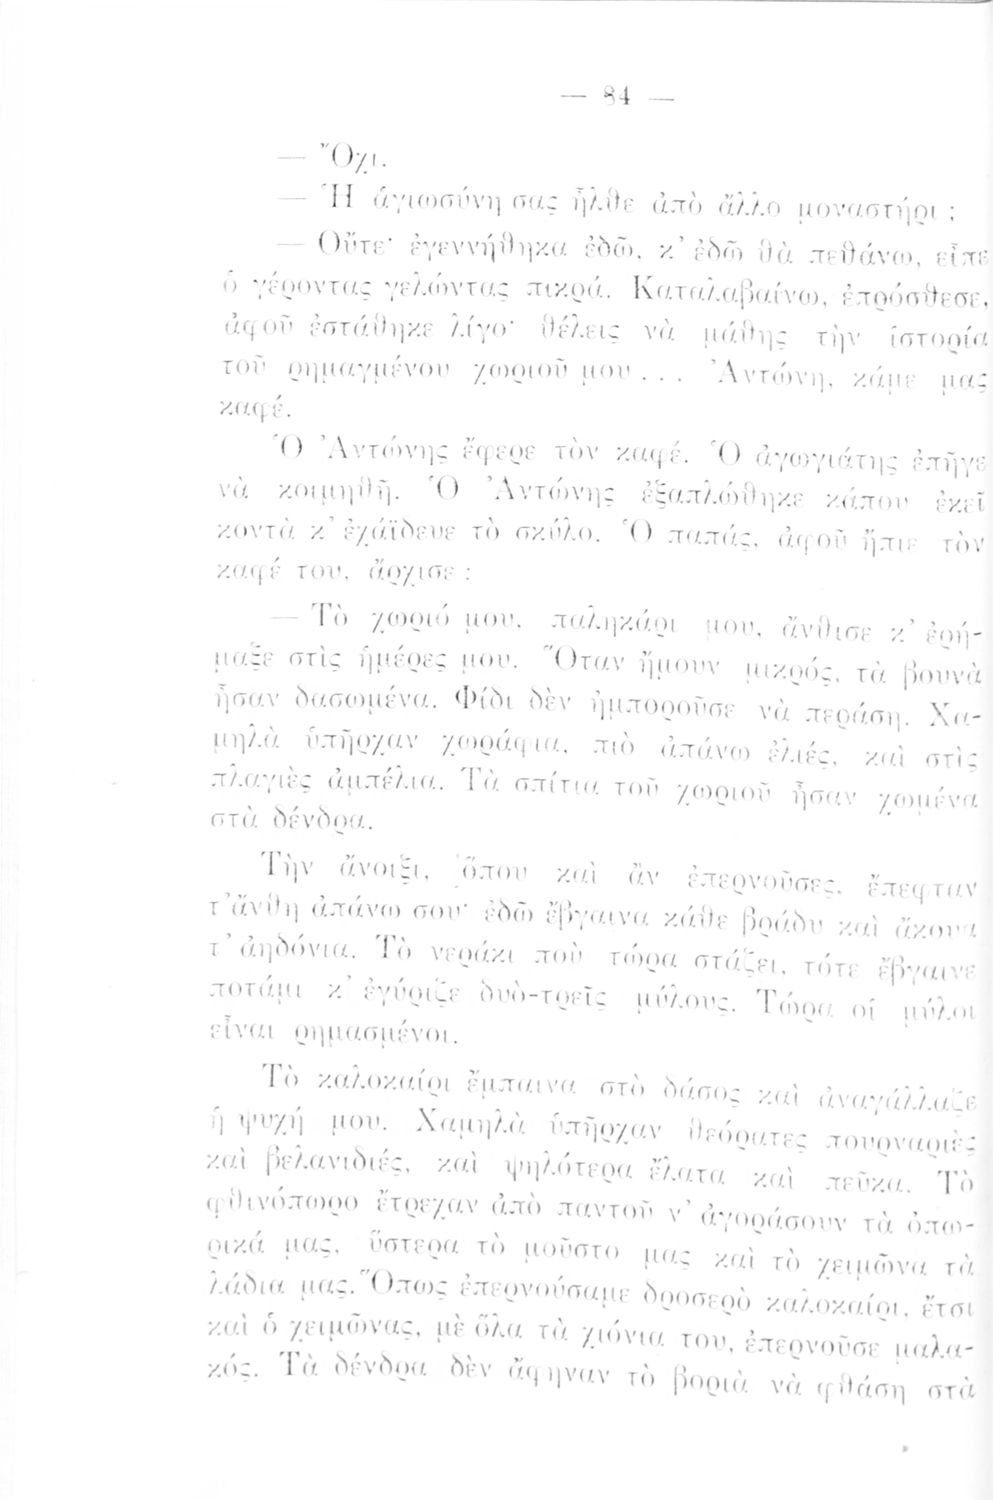 — 84 —
— Ὄχι.
— Ἡ ἁγιωσύνη σας ἦλθε ἀπὸ ἄλλο μοναστήρι ;
— Οὔτε· ἐγεννήθηκα ἐδῶ, κ᾽ ἐδῶ θὰ πεθάνω, εἶπε
ὁ γέροντας γελώντας πικρά. Καταλαβαίνω, ἐπρόσθεσε,
ἀφοῦ ἐστάθηκε λίγο· θέλεις νὰ μάθῃς τὴν ἱστορία
τοῦ ρημαγμένου χωριοῦ μου... Ἀντώνη, κάμε μας
καφέ.
Ὁ Ἀντώνης ἔφερε τὸν καφέ. Ὁ ἀγωγιάτης ἐπῆγε
νὰ κοιμηθῇ. Ὁ Ἀντώνης ἐξαπλώθηκε κάπου ἐκεῖ
κοντὰ κ᾽ ἐχάϊδευε τὸ σκύλο. Ὁ παπάς, ἀφοῦ ἤπιε τὸν
καφέ του, ἄρχισε :
— Τὸ χωριό μου, παληκάρι μου, ἄνθισε κ᾽ ἐρή-
μαξε στὶς ἡμέρες μου. Ὅταν ἤμουν μικρός, τὰ βουνὰ
ἦσαν δασωμένα. Φίδι δὲν ἠμποροῦσε νὰ περάσῃ. Χα-
μηλὰ ὑπῆρχαν χωράφια, πιὸ ἀπάνω ἐλιές, καὶ στὶς
πλαγιὲς ἀμπέλια. Τὰ σπίτια τοῦ χωριοῦ ἦσαν χωμένα
στὰ δένδρα.
Τὴν ἄνοιξι, ὅπου καὶ ἂν ἐπερνοῦσες, ἔπεφταν
τ᾽ ἄνθη ἀπάνω σου· ἐδῶ ἔβγαινα κάθε βράδυ καὶ ἄκουα
τ᾽ ἀηδόνια. Τὸ νεράκι ποὺ τώρα στάζει, τότε ἔβγαινε
ποτάμι κ᾽ ἐγύριζε δυὸ-τρεῖς μύλους. Τώρα οἱ μύλοι
εἶναι ρημασμένοι.
Τὸ καλοκαίρι ἔμπαινα στὸ δάσος καὶ ἀναγάλλαζε
ἡ ψυχή μου. Χαμηλὰ ὑπῆρχαν θεόρατες πουρναριὲς
καὶ βελανιδιές, καὶ ψηλότερα ἔλατα καὶ πεῦκα. Τὸ
φθινόπωρο ἔτρεχαν ἀπὸ παντοῦ ν᾽ ἀγοράσουν τὰ ὀπω-
ρικά μας, ὕστερα τὸ μοῦστο μας καὶ τὸ χειμῶνα τὰ
λάδια μας. Ὅπως ἐπερνούσαμε δροσερὸ καλοκαίρι, ἔτσι
καὶ ὁ χειμῶνας, μὲ ὅλα τὰ χιόνια του, ἐπερνοῦσε μαλα-
κός. Τὰ δένδρα δὲν ἄφηναν τὸ βοριὰ νὰ φθάσῃ στὰ